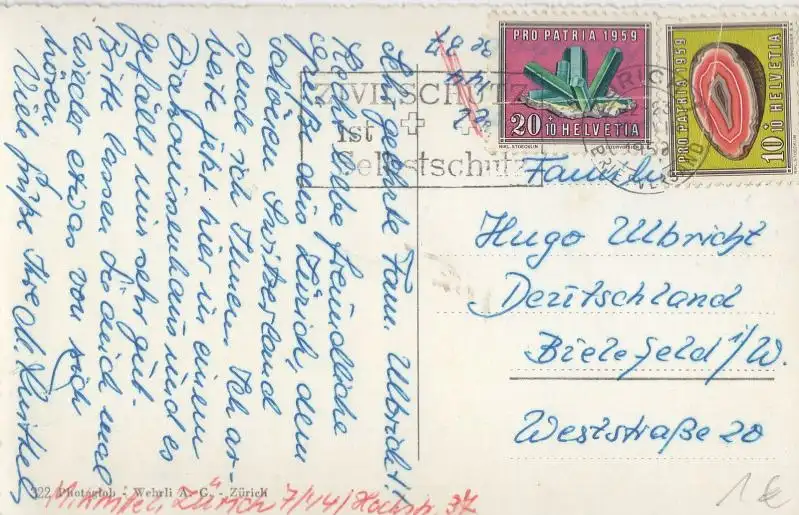 Sehr geehrte Fam. Ulbricht!
Recht liebe freundliche
Grüße aus Zürich, dem
schönen Switzerland
sende ich Ihnen. Ich ar-
beite jetzt hier in einem
Diakonissenhaus und es
gefällt mir sehr gut.
Bitte lassen Sie doch mal
wieder etwas von sich
hören
Viele Grüße Ihre
PRO PATRIA 1959
20 + 10 HELVETIA
PRO PATRIA 1959
10 + 10 HELVETIA
ZIVILSCHUTZ
ist
Selbstschutz
Familie
Hugo Ulbricht
Deutschland
Bielefeld i/W.
Weststraße 20
322 Photoglob - Wehrli A. G. - Zürich
Zürich 7/44/ Hochstr. 37
1 €